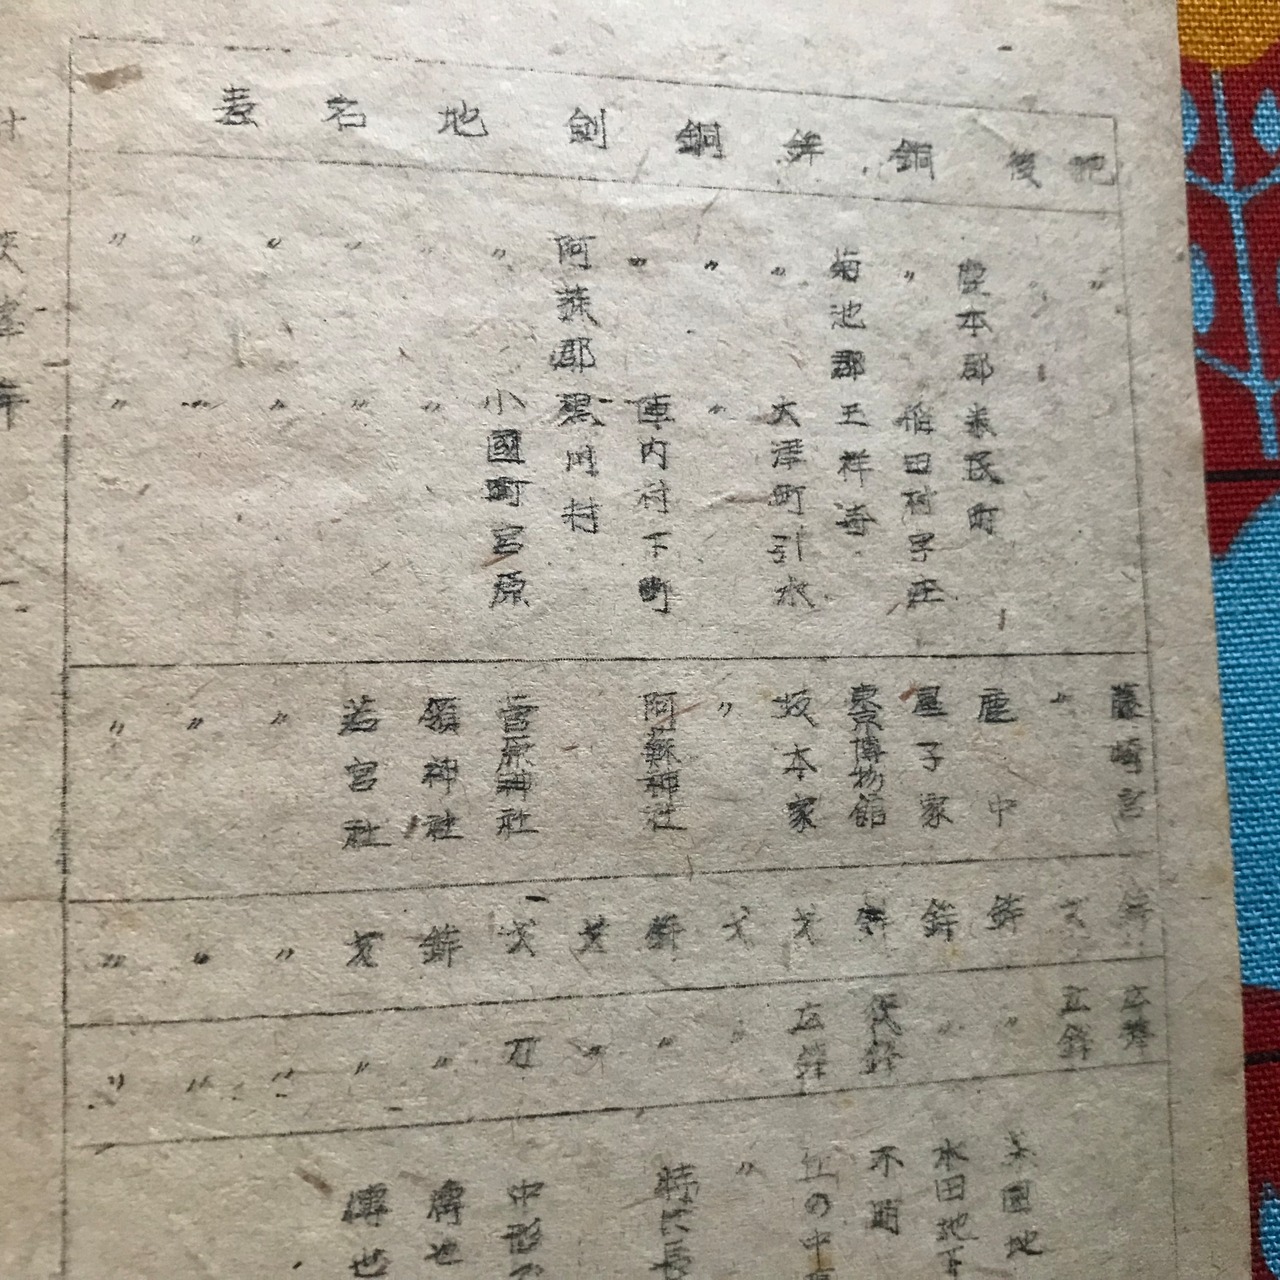 肥後銅鉾銅剣地名表
〃 藤崎宮 鉾 広鋒
〃 〃 戈 広鋒
鹿本郡 米民町 鹿中 鉾 〃 茶園地
〃 稲田村 庄 星子家 鉾 〃 水田地下
菊池郡 王祥寺 東京博物館 鉾 狭鋒 不明
〃 大津町引水 坂本家 戈 広鋒 丘の中
〃 〃 〃 戈 〃 〃
〃 陣内村下町 阿蘇神社 鉾 〃 特に長
阿蘇郡 黒川村 戈 〃
〃 小國町宮原 菅原神社 戈 刀 中形
〃 〃 領神社 鉾 〃 傳世
〃 〃 若宮社 戈 〃 傳世
〃 〃 〃 〃 〃
〃 〃 〃 〃 〃
〃 〃 〃 〃 〃